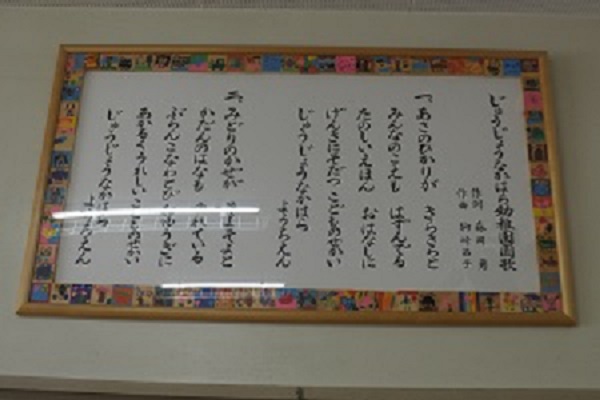 じょうじょうなかはら幼稚園園歌
作詞
作曲
一、あさのひかりが きらきらと
みんなのこえも はずんでる
たのしいえほん おはなしに
げんきにそだつ こどものせかい
じょうじょうなかはら
ようちえん
二、みどりのかぜが そよそよと
かだんのはなも ゆれている
ぶらんこ なわとび
あかるくうれしい こどものせかい
じょうじょうなかはら
ようちえん